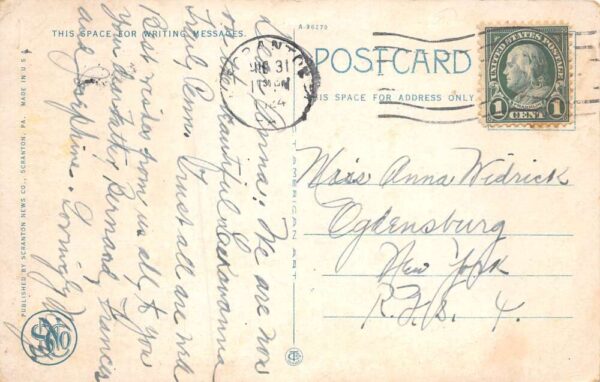 A-96270
THIS SPACE FOR WRITING MESSAGES.
POSTCARD
THIS SPACE FOR ADDRESS ONLY
PUBLISHED BY SCRANTON NEWS CO., SCRANTON, PA. MADE IN U.S.A.
SCRANTON
AUG 31
UNITED STATES POSTAGE
FRANKLIN
1 CENT 1
Anna: We are now
beautiful Lackawanna
Penn. Trust all are well
Best wishes from us all, to you
Bernard, Francis
and Josephine. Lovingly
Miss Anna Widrick
Ogdensburg
New York
R.F.D. 4.